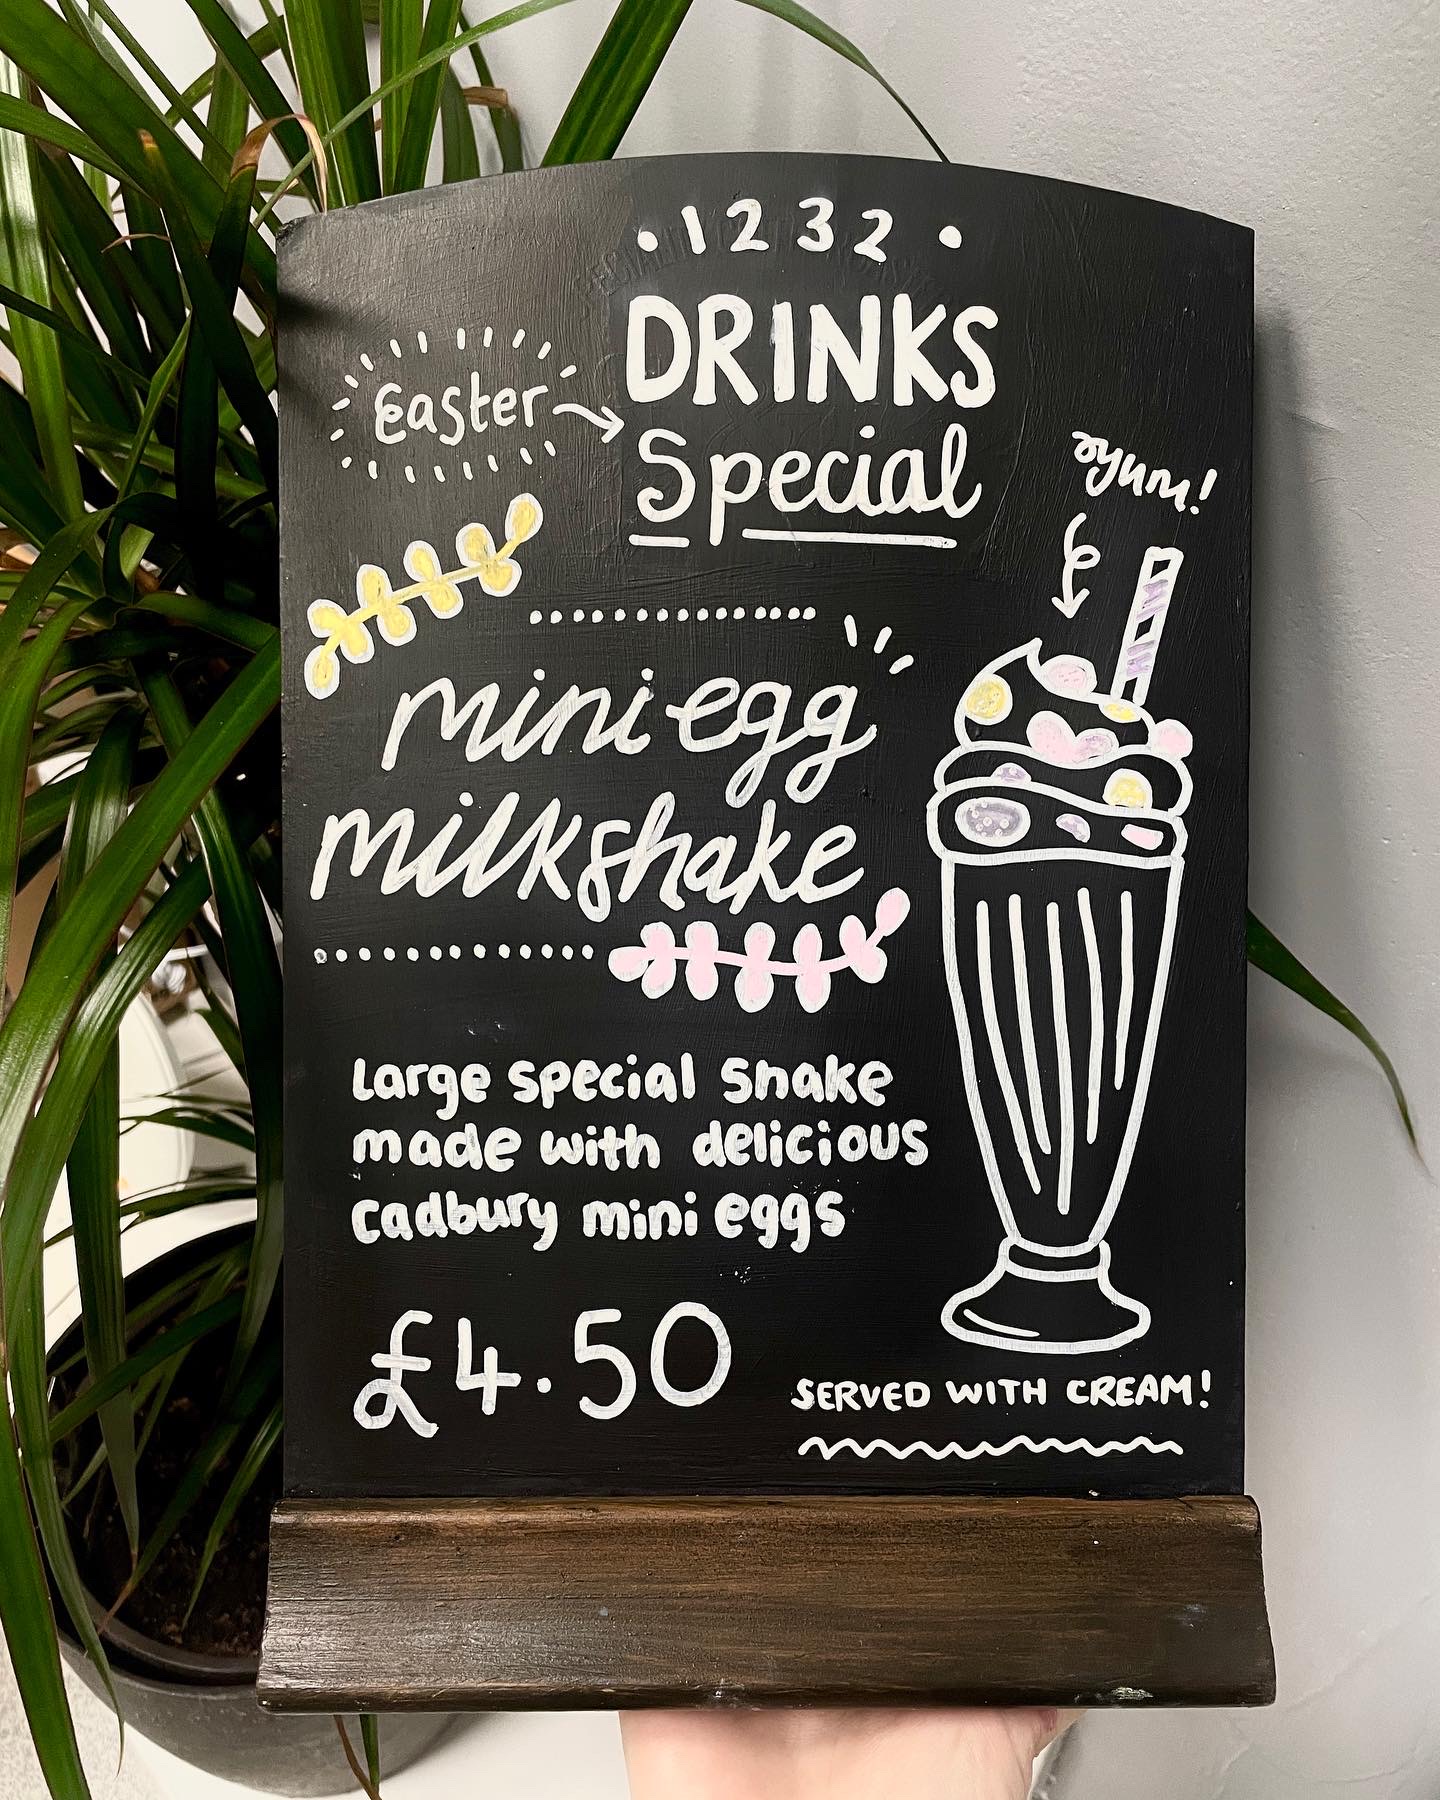 • 1232 •
DRINKS
Easter
Special
yum!
mini egg
milkshake
Large special shake
made with delicious
cadbury mini eggs
£4.50
SERVED WITH CREAM!